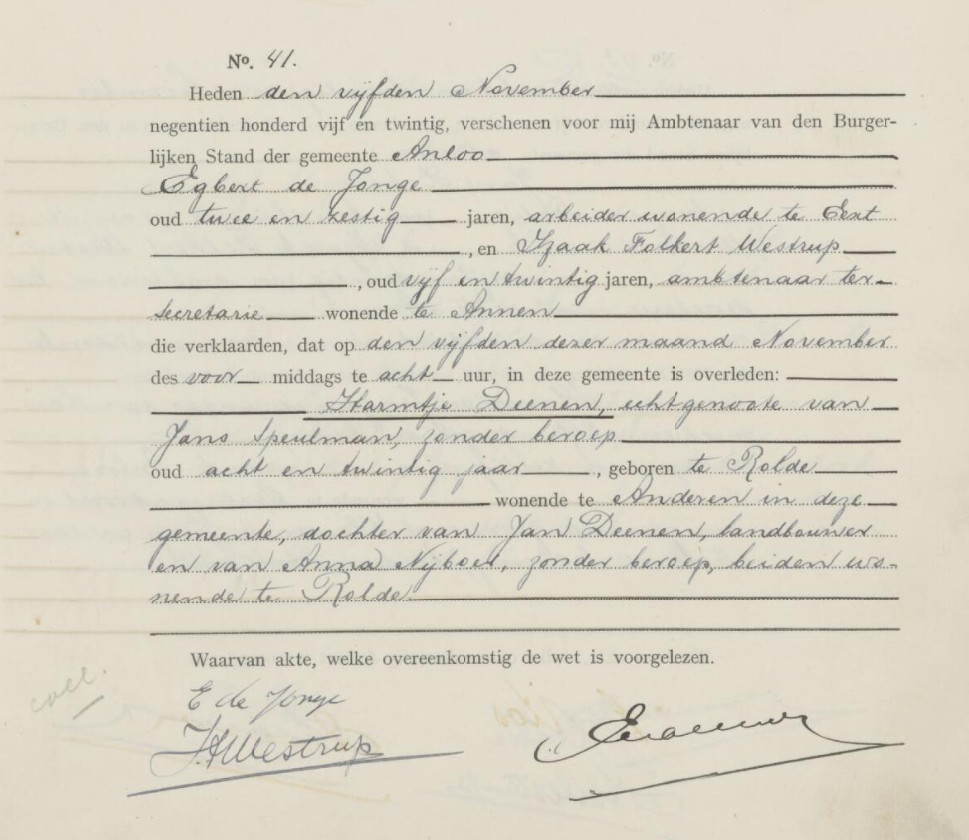 No. 41.
Heden den vijfden November
negentien honderd vijf en twintig, verschenen voor mij Ambtenaar van den Burger-
lijken Stand der gemeente Anloo
Egbert de Jonge
oud twee en zestig jaren, arbeider wonende te Eext
, en Izaak Folkert Westrup
, oud vijf en twintig jaren, ambtenaar ter-
secretarie wonende te Annen
die verklaarden, dat op den vijfden dezer maand November
des voor middags te acht uur, in deze gemeente is overleden:
Harmtje Deenen, echtgenoote van
Jans Speulman, zonder beroep
oud acht en twintig jaar, geboren te Rolde
wonende te Anderen in deze
gemeente, dochter van Jan Deenen, landbouwer
en van Anna Nijboer, zonder beroep, beiden wo-
nende te Rolde
Waarvan akte, welke overeenkomstig de wet is voorgelezen.
coll.
E de Jonge
I.F. Westrup